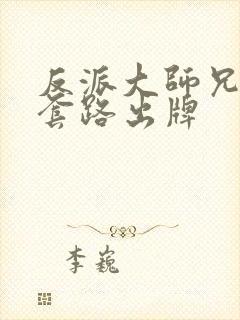 反派大師兄
套路出牌
李巍